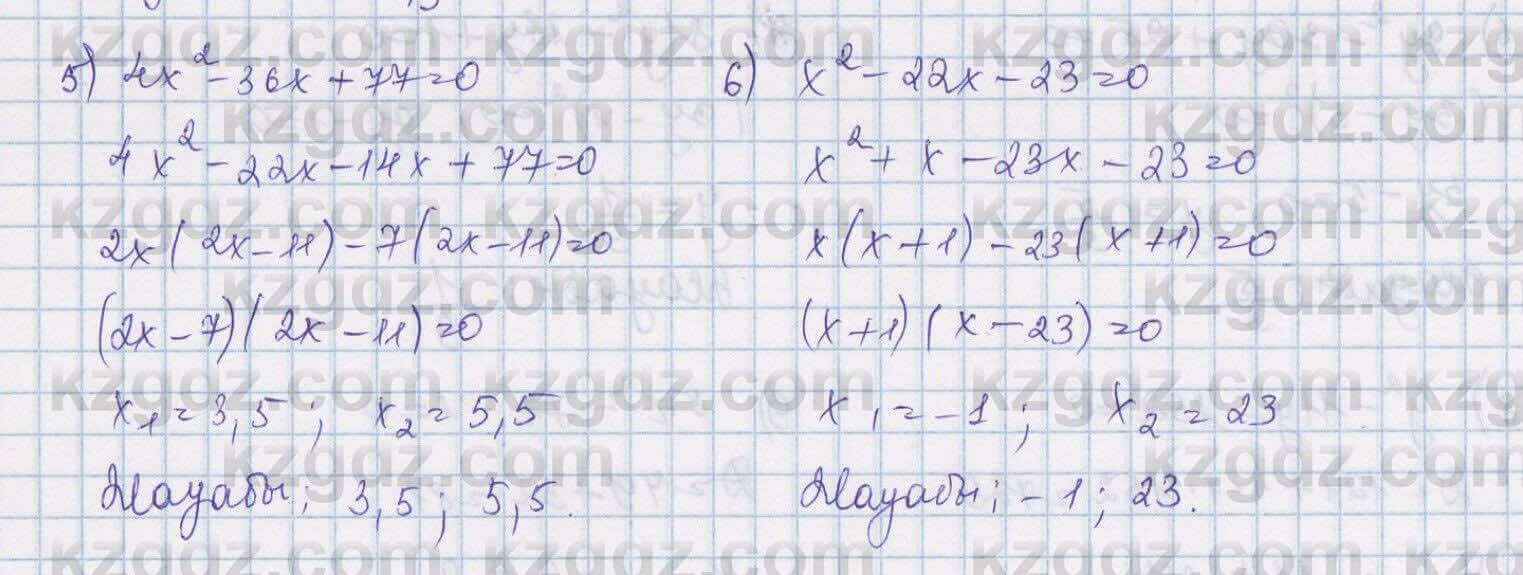 5) 4x² - 36x + 77 = 0
4x² - 22x - 14x + 77 = 0
2x(2x - 11) - 7(2x - 11) = 0
(2x - 7)(2x - 11) = 0
x₁ = 3,5; x₂ = 5,5
Жауабы; 3,5; 5,5.
6) x² - 22x - 23 = 0
x² + x - 23x - 23 = 0
x(x + 1) - 23(x + 1) = 0
(x + 1)(x - 23) = 0
x₁ = -1; x₂ = 23
Жауабы; -1; 23.
kzgdz.com